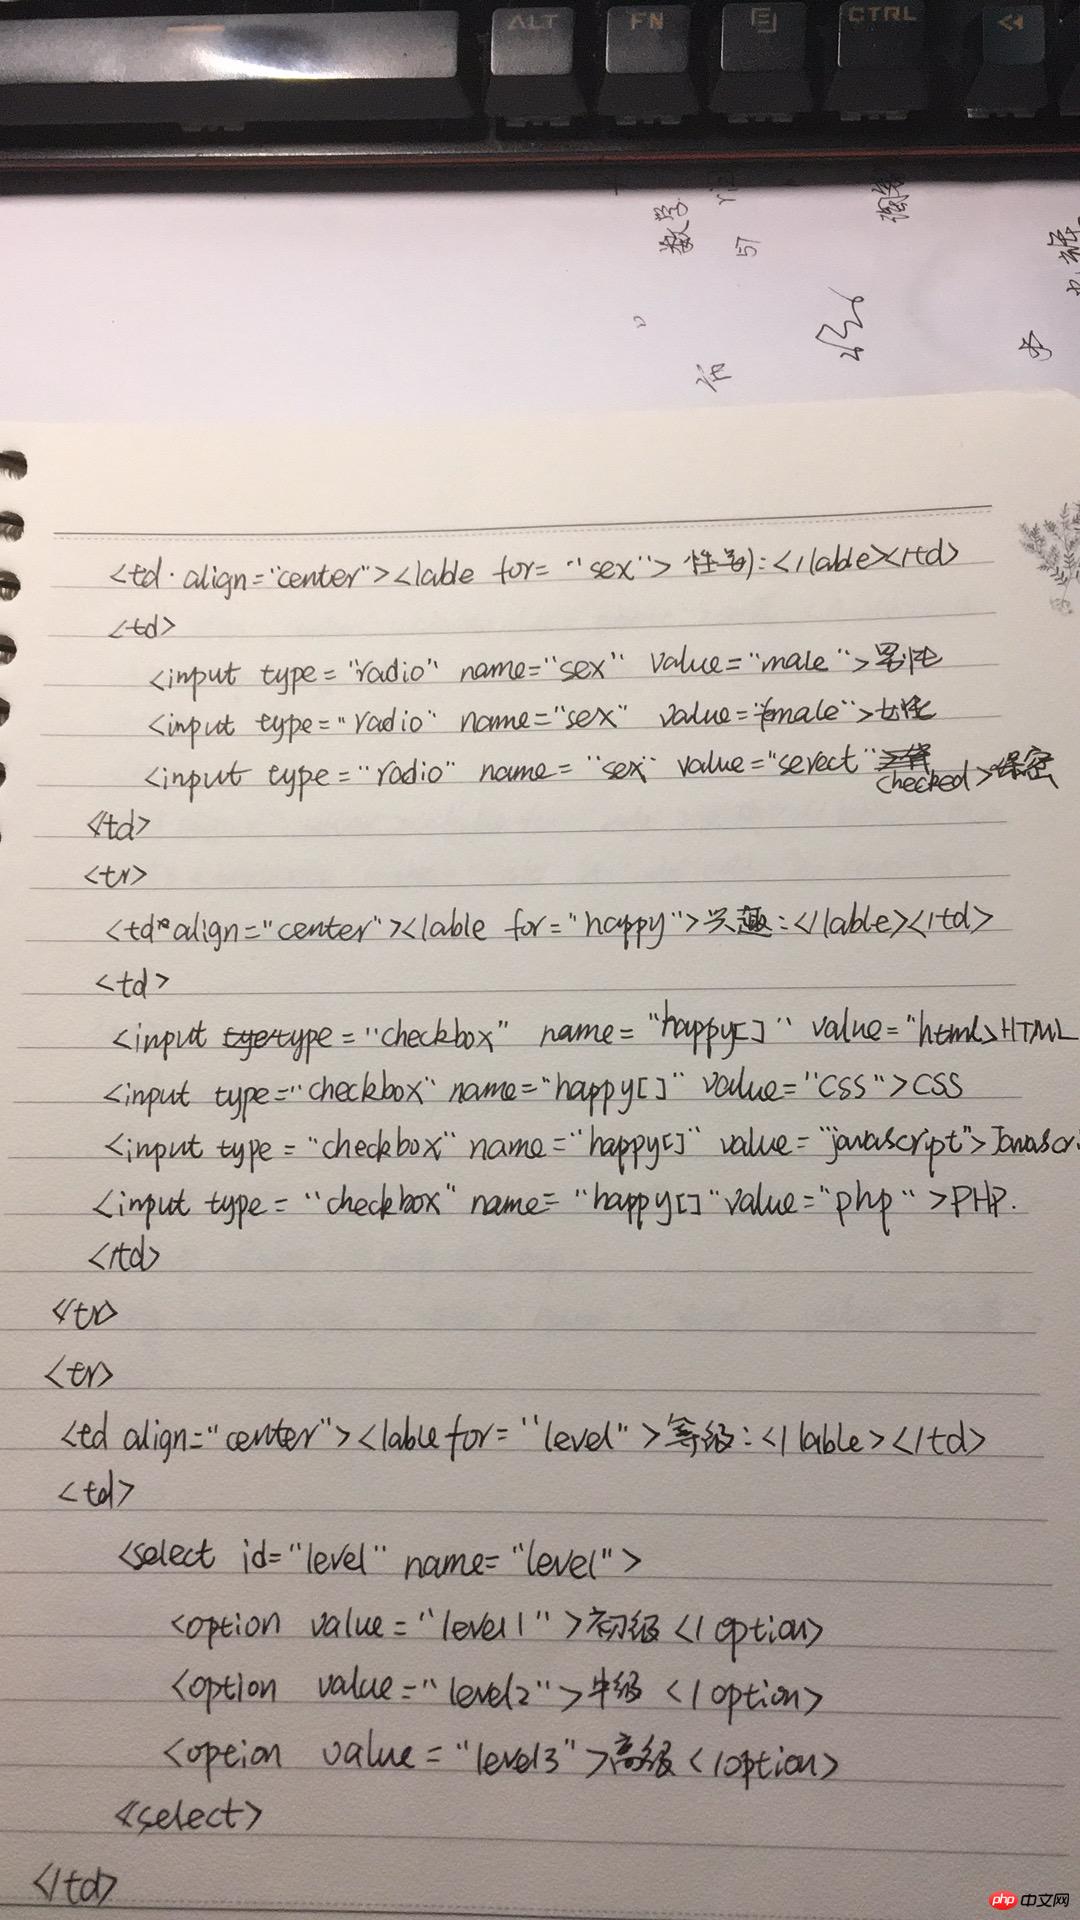 ALT FN CTRL
数学
<td align="center"><lable for="sex">性别:</lable></td>
<td>
<input type="radio" name="sex" value="male">男性
<input type="radio" name="sex" value="female">女性
<input type="radio" name="sex" value="serect" checked>保密
</td>
<tr>
<td align="center"><lable for="happy">兴趣:</lable></td>
<td>
<input type="checkbox" name="happy[]" value="html>HTML
<input type="checkbox" name="happy[]" value="CSS">CSS
<input type="checkbox" name="happy[]" value="javascript">Javascr
<input type="checkbox" name="happy[]" value="php">PHP.
</td>
</tr>
<tr>
<td align="center"><lable for="level">等级:</lable></td>
<td>
<select id="level" name="level">
<option value="level1">初级</option>
<option value="level2">中级</option>
<option value="level3">高级</option>
</select>
</td>
php 中文网